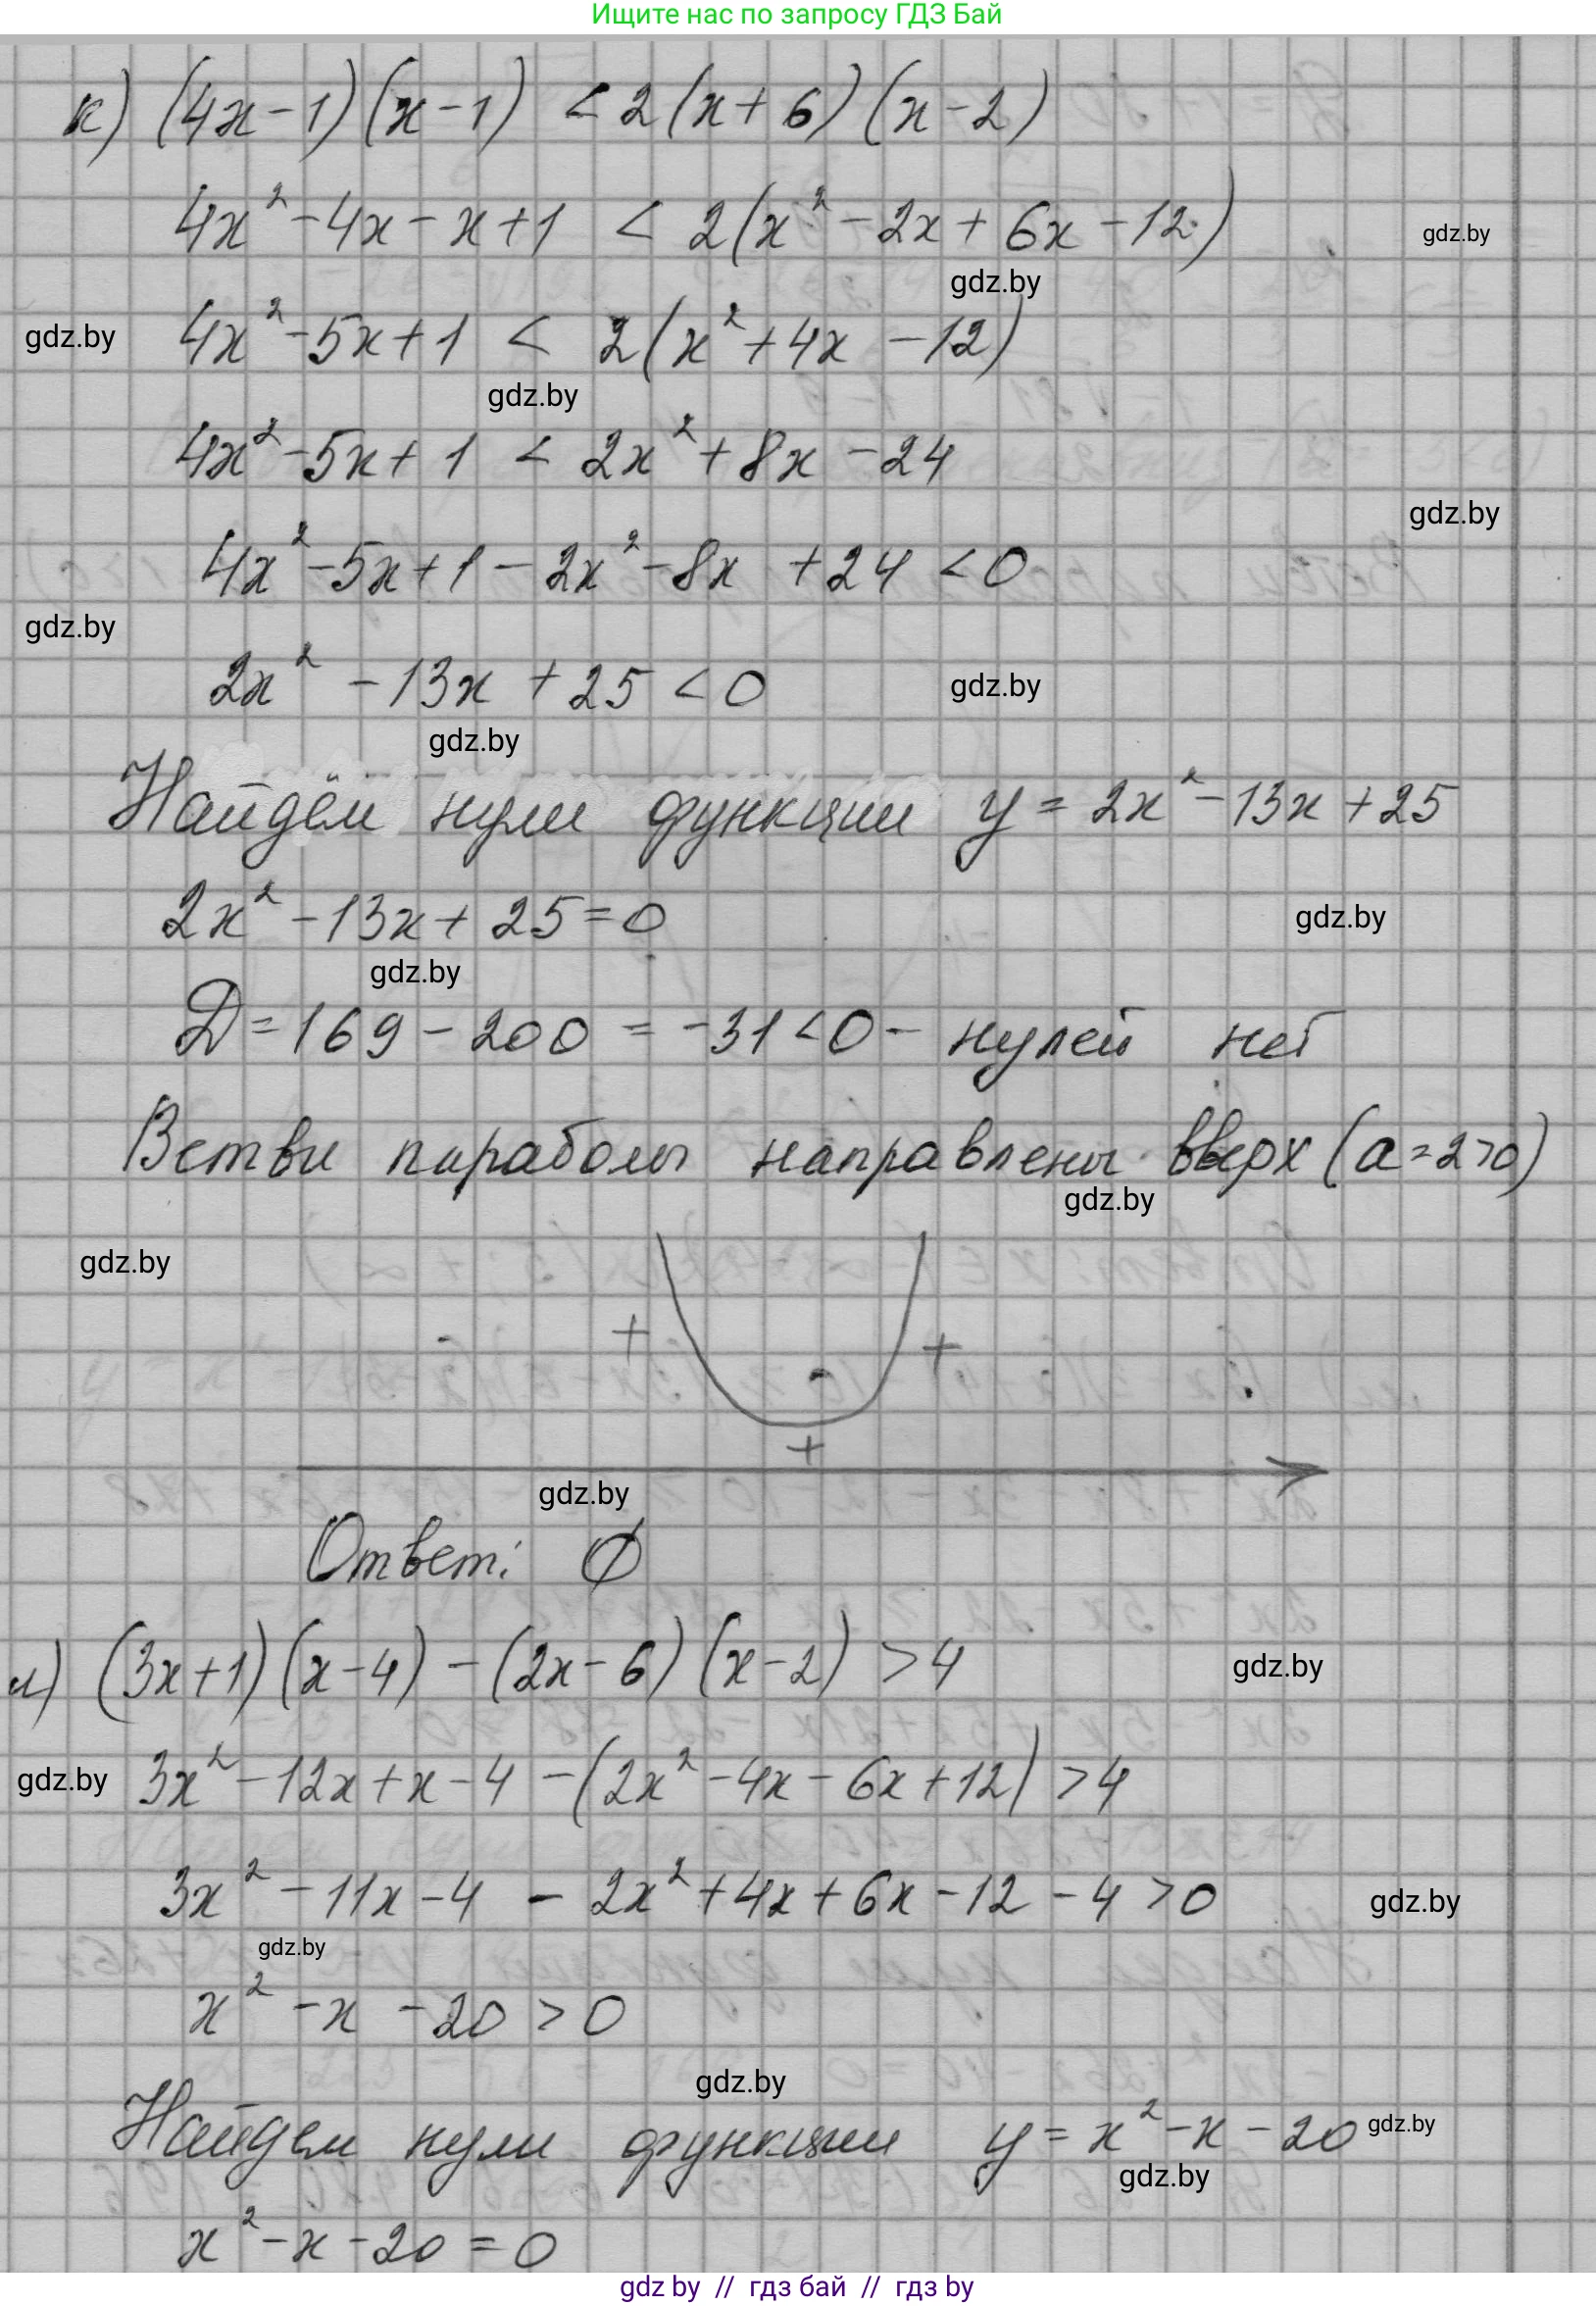 Ищите нас по запросу ГДЗ Бай
к) (4x-1)(x-1) < 2(x+6)(x-2)
4x²-4x-x+1 < 2(x²-2x+6x-12)
gdz.by
gdz.by
gdz.by 4x²-5x+1 < 2(x²+4x-12)
gdz.by
4x²-5x+1 < 2x²+8x-24
gdz.by
4x²-5x+1-2x²-8x+24<0
gdz.by
2x²-13x+25<0 gdz.by
gdz.by
Найдём нули функции y=2x²-13x+25
2x²-13x+25=0 gdz.by
gdz.by
Д=169-200=-31<0- нулей нет
Ветви параболы направлены вверх (a=2>0)
gdz.by
gdz.by
+ +
+
gdz.by
Ответ: Ø
л) (3x+1)(x-4)-(2x-6)(x-2)>4 gdz.by
gdz.by 3x²-12x+x-4-(2x²-4x-6x+12)>4
3x²-11x-4-2x²+4x+6x-12-4>0 gdz.by
gdz.by
x²-x-20>0
gdz.by
Найдем нули функции y=x²-x-20 gdz.by
gdz.by
x²-x-20=0
gdz by // гдз бай // гдз by